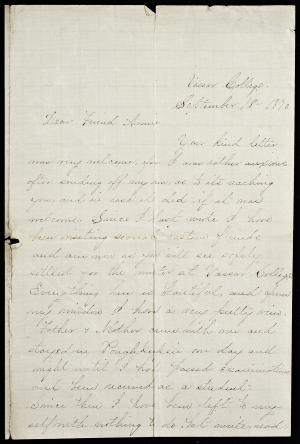 Vassar College.
September 18th 1870
Dear Friend Annie
Your kind letter
was very welcome, for I was rather anxious
after sending off my own as to its reaching
you and in case it did if it was
welcome. Since I last wrote I have
been meeting several eastern friends
and am now as you will see safely
settled for the winter at Vassar College
Everything here is beautiful, and from
my window I have a very pretty view.
Father & Mother came with me and
stayed in Poughkeepsie one day and
night until I had passed Examinations
and been received as a student.
Since then I have been left to my
self with nothing to do but write read